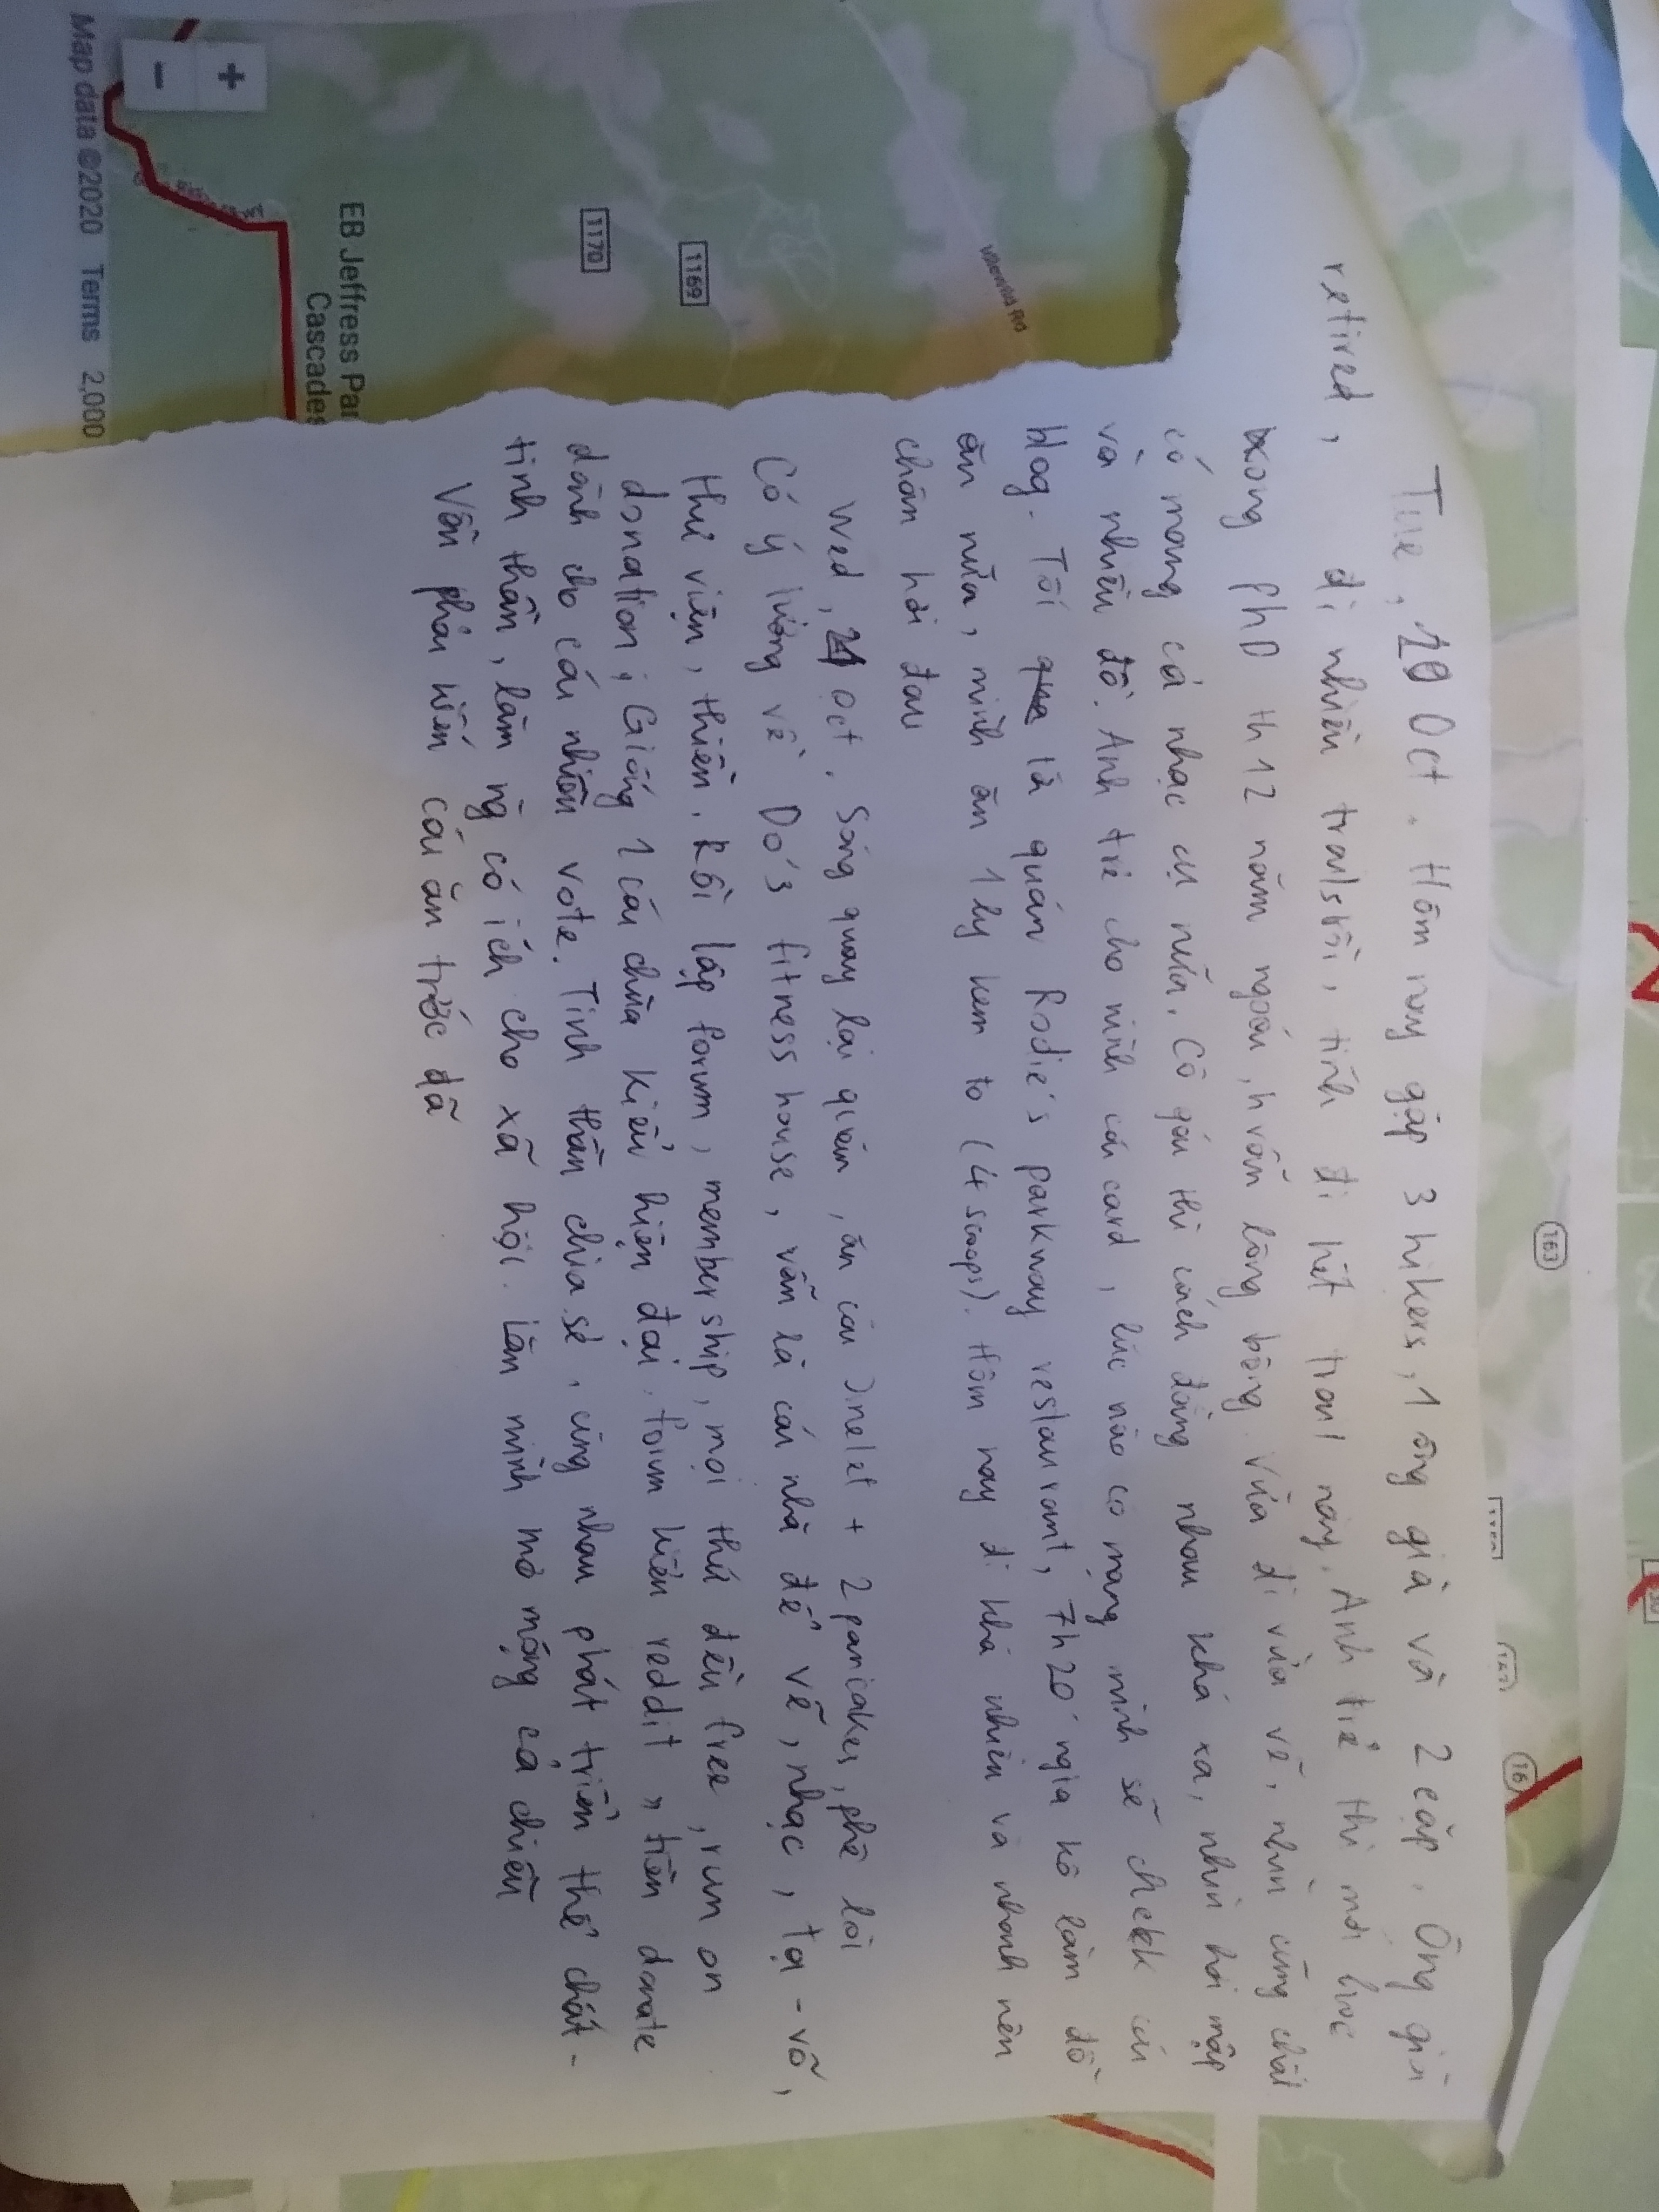 Tue, 20 Oct. Hôm nay gặp 3 hikers, 1 ông già và 2 cặp. Ông già
retired, đi nhiều trails rồi, tính đi hết trail này. Anh trẻ thì mới học
xong PhD th 12 năm ngoái, h vẫn lông bông. Vừa đi vừa về, nhìn cũng chất
có mang cả nhạc cụ nữa. Cô gái thì cách đằng nhau khá xa, nhìn hơi mập
và nhiều đồ. Anh trẻ cho mình cái card, lúc nào có mạng mình sẽ check cái
blog. Tối là quán Rodie's parkway restaurant, 7h20' ngta kô làm đồ
ăn nữa, mình ăn 1 ly kem to (4 scoops). Hôm nay đi khá nhiều và nhanh nên
chân hơi đau
Wed, 21 Oct. Sáng quay lại quán, ăn cái omelet + 2 pancakes, phê lòi
Có ý tưởng về Do's fitness house, vẫn là cái nhà để vẽ, nhạc, tạ - võ,
thư viện, thiền. Rồi lập forum, membership, mọi thứ đều free, run on
donation; Giống 1 cái chùa kiểu hiện đại. forum kiểu reddit, tiền donate
dành cho cái nhiều vote. Tinh thần chia sẻ, cùng nhau phát triển thể chất -
tinh thần, làm ng có ích cho xã hội. Lần mình mơ mộng cả chiều
Vẫn phải kiếm cái ăn trước đã
163
16
1169
1170
EB Jeffress Par
Cascades
+
−
Map data ©2020 Terms 2,000